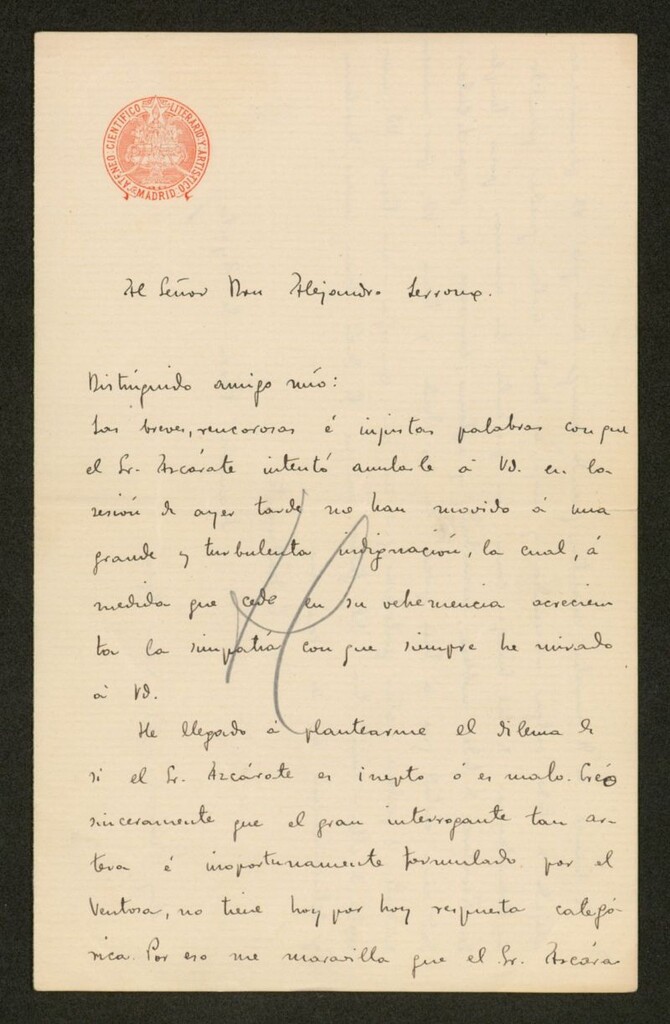 ATENEO CIENTÍFICO LITERARIO Y ARTÍSTICO
MADRID
Al Señor Don Alejandro Lerroux.
Distinguido amigo mío:
Las breves, rencorosas é injustas palabras con que
el Sr. Azcárate intentó anularle á Vd. en la
sesión de ayer tarde no han movido á una
grande y turbulenta indignación, la cual, á
medida que cede en su vehemencia acrecien
ta la simpatía con que siempre he mirado
á Vd.
He llegado á plantearme el dilema de
si el Sr. Azcárate es inepto ó es malo. Creo
sinceramente que el gran interrogante tan ar-
tera é inoportunamente formulado por el
Ventosa, no tiene hoy por hoy respuesta categó-
rica. Por eso me maravilla que el Sr. Azcára